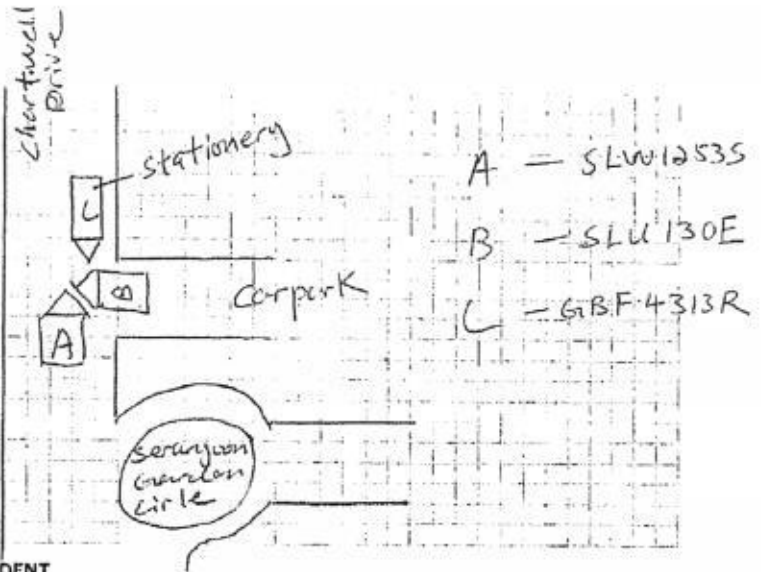 Chartwell
Drive
stationery
L
B
A
carpark
A — SLW1253S
B — SLU130E
L — GBF4313R
Serangoon
Garden
Circle
DENT